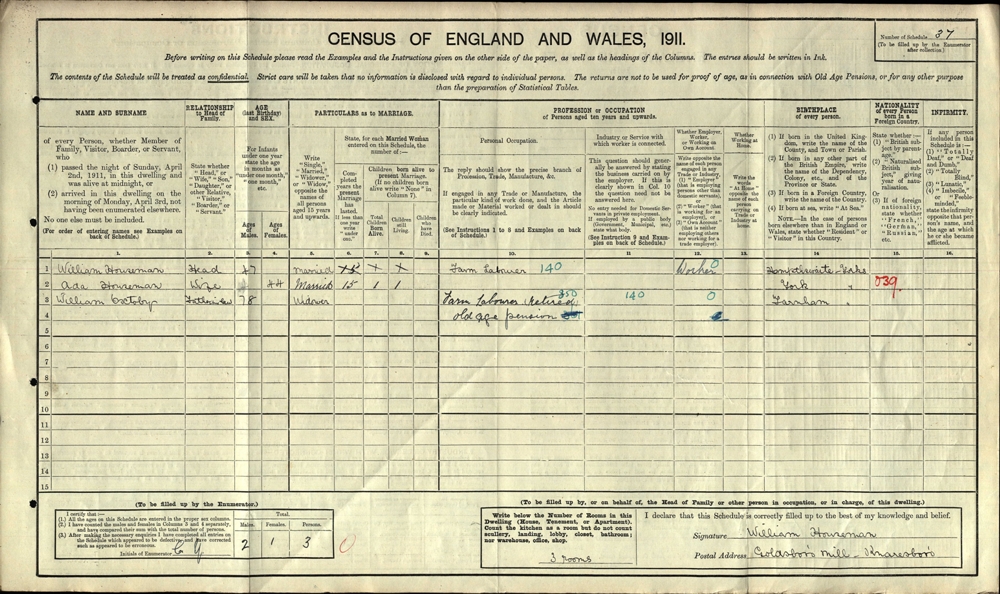 CENSUS OF ENGLAND AND WALES, 1911.
Number of Schedule 37
(To be filled up by the Enumerator after collection.)
Before writing on this Schedule please read the Examples and the Instructions given on the other side of the paper, as well as the headings of the Columns. The entries should be written in Ink.
The contents of the Schedule will be treated as confidential. Strict care will be taken that no information is disclosed with regard to individual persons. The returns are not to be used for proof of age, as in connection with Old Age Pensions, or for any other purpose
than the preparation of Statistical Tables.
NAME AND SURNAME
of every Person, whether Member of Family, Visitor, Boarder, or Servant, who
(1) passed the night of Sunday, April 2nd, 1911, in this dwelling and was alive at midnight, or
(2) arrived in this dwelling on the morning of Monday, April 3rd, not having been enumerated elsewhere.
No one else must be included.
(For order of entering names see Examples on back of Schedule.)
RELATIONSHIP to Head of Family.
State whether "Head," or "Wife," "Son," "Daughter," or other Relative, "Visitor," "Boarder," or "Servant."
AGE (last Birthday) and SEX.
For Infants under one year state the age in months as "under one month," "one month," etc.
Ages of Males.
Ages of Females.
PARTICULARS as to MARRIAGE.
Write "Single," "Married," "Widower," or "Widow," opposite the names of all persons aged 15 years and upwards.
State, for each Married Woman entered on this Schedule, the number of:—
Completed years the present Marriage has lasted. If less than one year write "under one."
Children born alive to present Marriage. (If no children born alive write "None" in Column 7).
Total Children Born Alive.
Children still Living.
Children who have Died.
PROFESSION or OCCUPATION
of Persons aged ten years and upwards.
Personal Occupation.
The reply should show the precise branch of Profession, Trade, Manufacture, &c.
If engaged in any Trade or Manufacture, the particular kind of work done, and the Article made or Material worked or dealt in should be clearly indicated.
(See Instructions 1 to 8 and Examples on back of Schedule.)
Industry or Service with which worker is connected.
This question should generally be answered by stating the business carried on by the employer. If this is clearly shown in Col. 10 the question need not be answered here.
No entry needed for Domestic Servants in private employment. If employed by a public body (Government, Municipal, etc.) state what body.
(See Instruction 9 and Examples on back of Schedule.)
Whether Employer, Worker, or Working on Own Account.
Write opposite the name of each person engaged in any Trade or Industry, (1) "Employer" (that is employing persons other than domestic servants), or (2) "Worker" (that is working for an employer), or (3) "Own Account" (that is neither employing others nor working for a trade employer).
Whether Working at Home.
Write the words "At Home" opposite the name of each person carrying on Trade or Industry at home.
BIRTHPLACE of every person.
(1) If born in the United Kingdom, write the name of the County, and Town or Parish.
(2) If born in any other part of the British Empire, write the name of the Dependency, Colony, etc., and of the Province or State.
(3) If born in a Foreign Country, write the name of the Country.
(4) If born at sea, write "At Sea."
NOTE.—In the case of persons born elsewhere than in England or Wales, state whether "Resident" or "Visitor" in this Country.
NATIONALITY of every Person born in a Foreign Country.
State whether:—
(1) "British subject by parentage."
(2) "Naturalised British subject," giving year of naturalisation.
Or
(3) If of foreign nationality, state whether "French," "German," "Russian," etc.
INFIRMITY.
If any person included in this Schedule is:—
(1) "Totally Deaf," or "Deaf and Dumb,"
(2) "Totally Blind,"
(3) "Lunatic,"
(4) "Imbecile," or "Feeble-minded,"
state the infirmity opposite that person's name, and the age at which he or she became afflicted.
1. 2. 3. 4. 5. 6. 7. 8. 9. 10. 11. 12. 13. 14. 15. 16.
1 William Houseman Head 47 Married 15 x x x Farm Labourer 140 Worker 0 Hampsthwaite - Yorks
2 Ada Houseman Wife 44 Married 15 1 1 York " 039
3 William Father in Law 78 Widower Farm Labourer retired 350 140 0 Farnham "
4 old age pension
5
6
7
8
9
10
11
12
13
14
15
(To be filled up by the Enumerator.)
I certify that:—
(1.) All the ages on this Schedule are entered in the proper sex columns.
(2.) I have counted the males and females in Columns 3 and 4 separately, and have compared their sum with the total number of persons.
(3.) After making the necessary enquiries I have completed all entries on the Schedule which appeared to be defective, and have corrected such as appeared to be erroneous.
Initials of Enumerator
Total.
Males. Females. Persons.
2 1 3
0
(To be filled up by, or on behalf of, the Head of Family or other person in occupation, or in charge, of this dwelling.)
Write below the Number of Rooms in this Dwelling (House, Tenement, or Apartment). Count the kitchen as a room but do not count scullery, landing, lobby, closet, bathroom; nor warehouse, office, shop.
3 rooms
I declare that this Schedule is correctly filled up to the best of my knowledge and belief.
Signature William Houseman
Postal Address Goldsboro Mill - Knaresboro